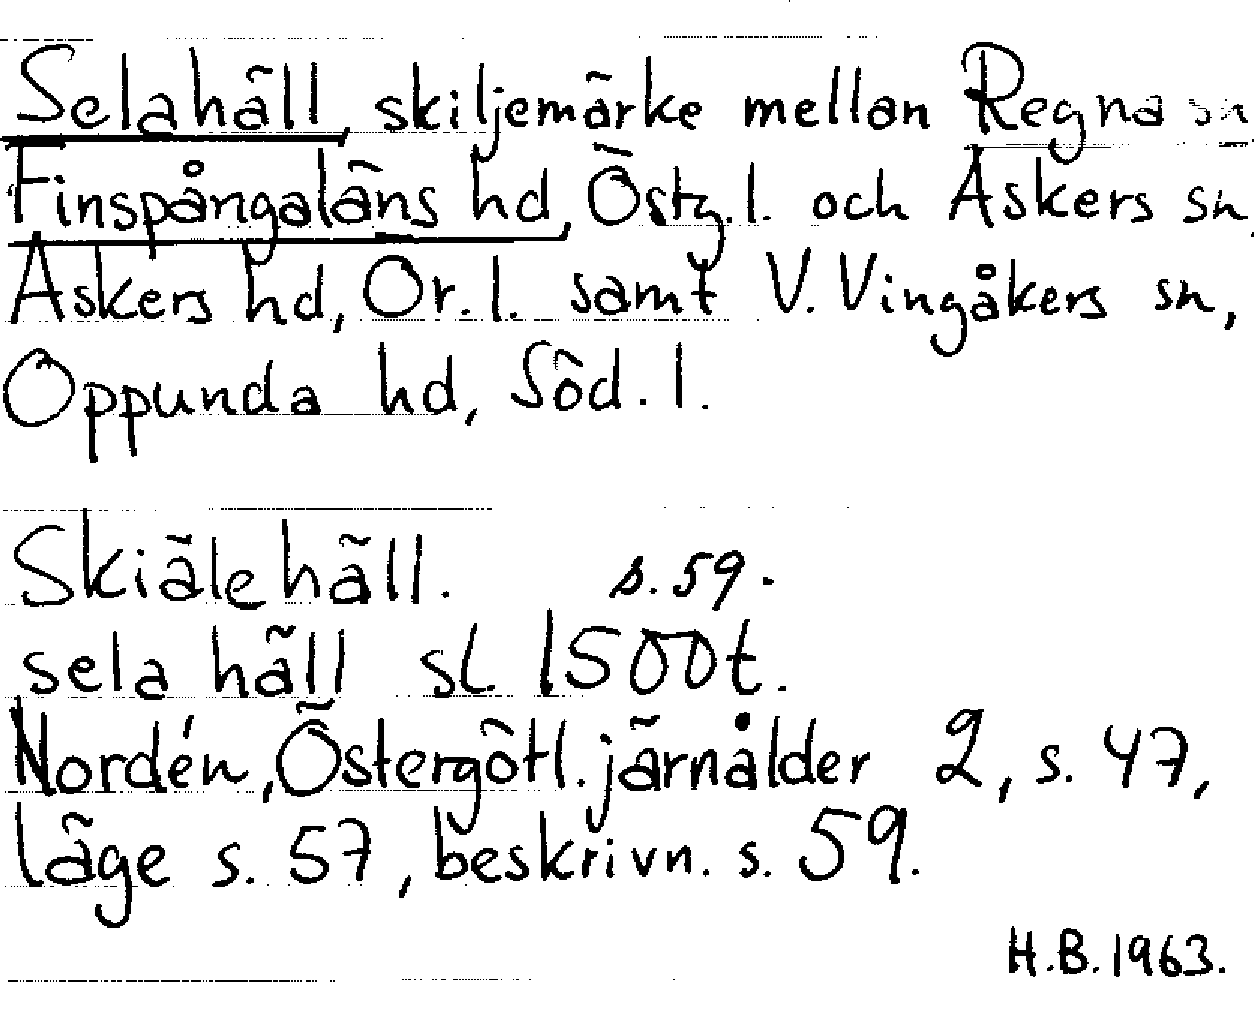 Selahäll skiljemärke mellan Regna sn
Finspångaläns hd, Östg.l. och Askers sn
Askers hd, Ör.l. samt V. Vingåkers sn,
Oppunda hd, Söd.l.
Skiälehäll. s.59.
sela häll sl 1500t.
Nordén, Östergötl. järnålder 2, s. 47,
läge s. 57, beskrivn. s. 59.
H.B. 1963.